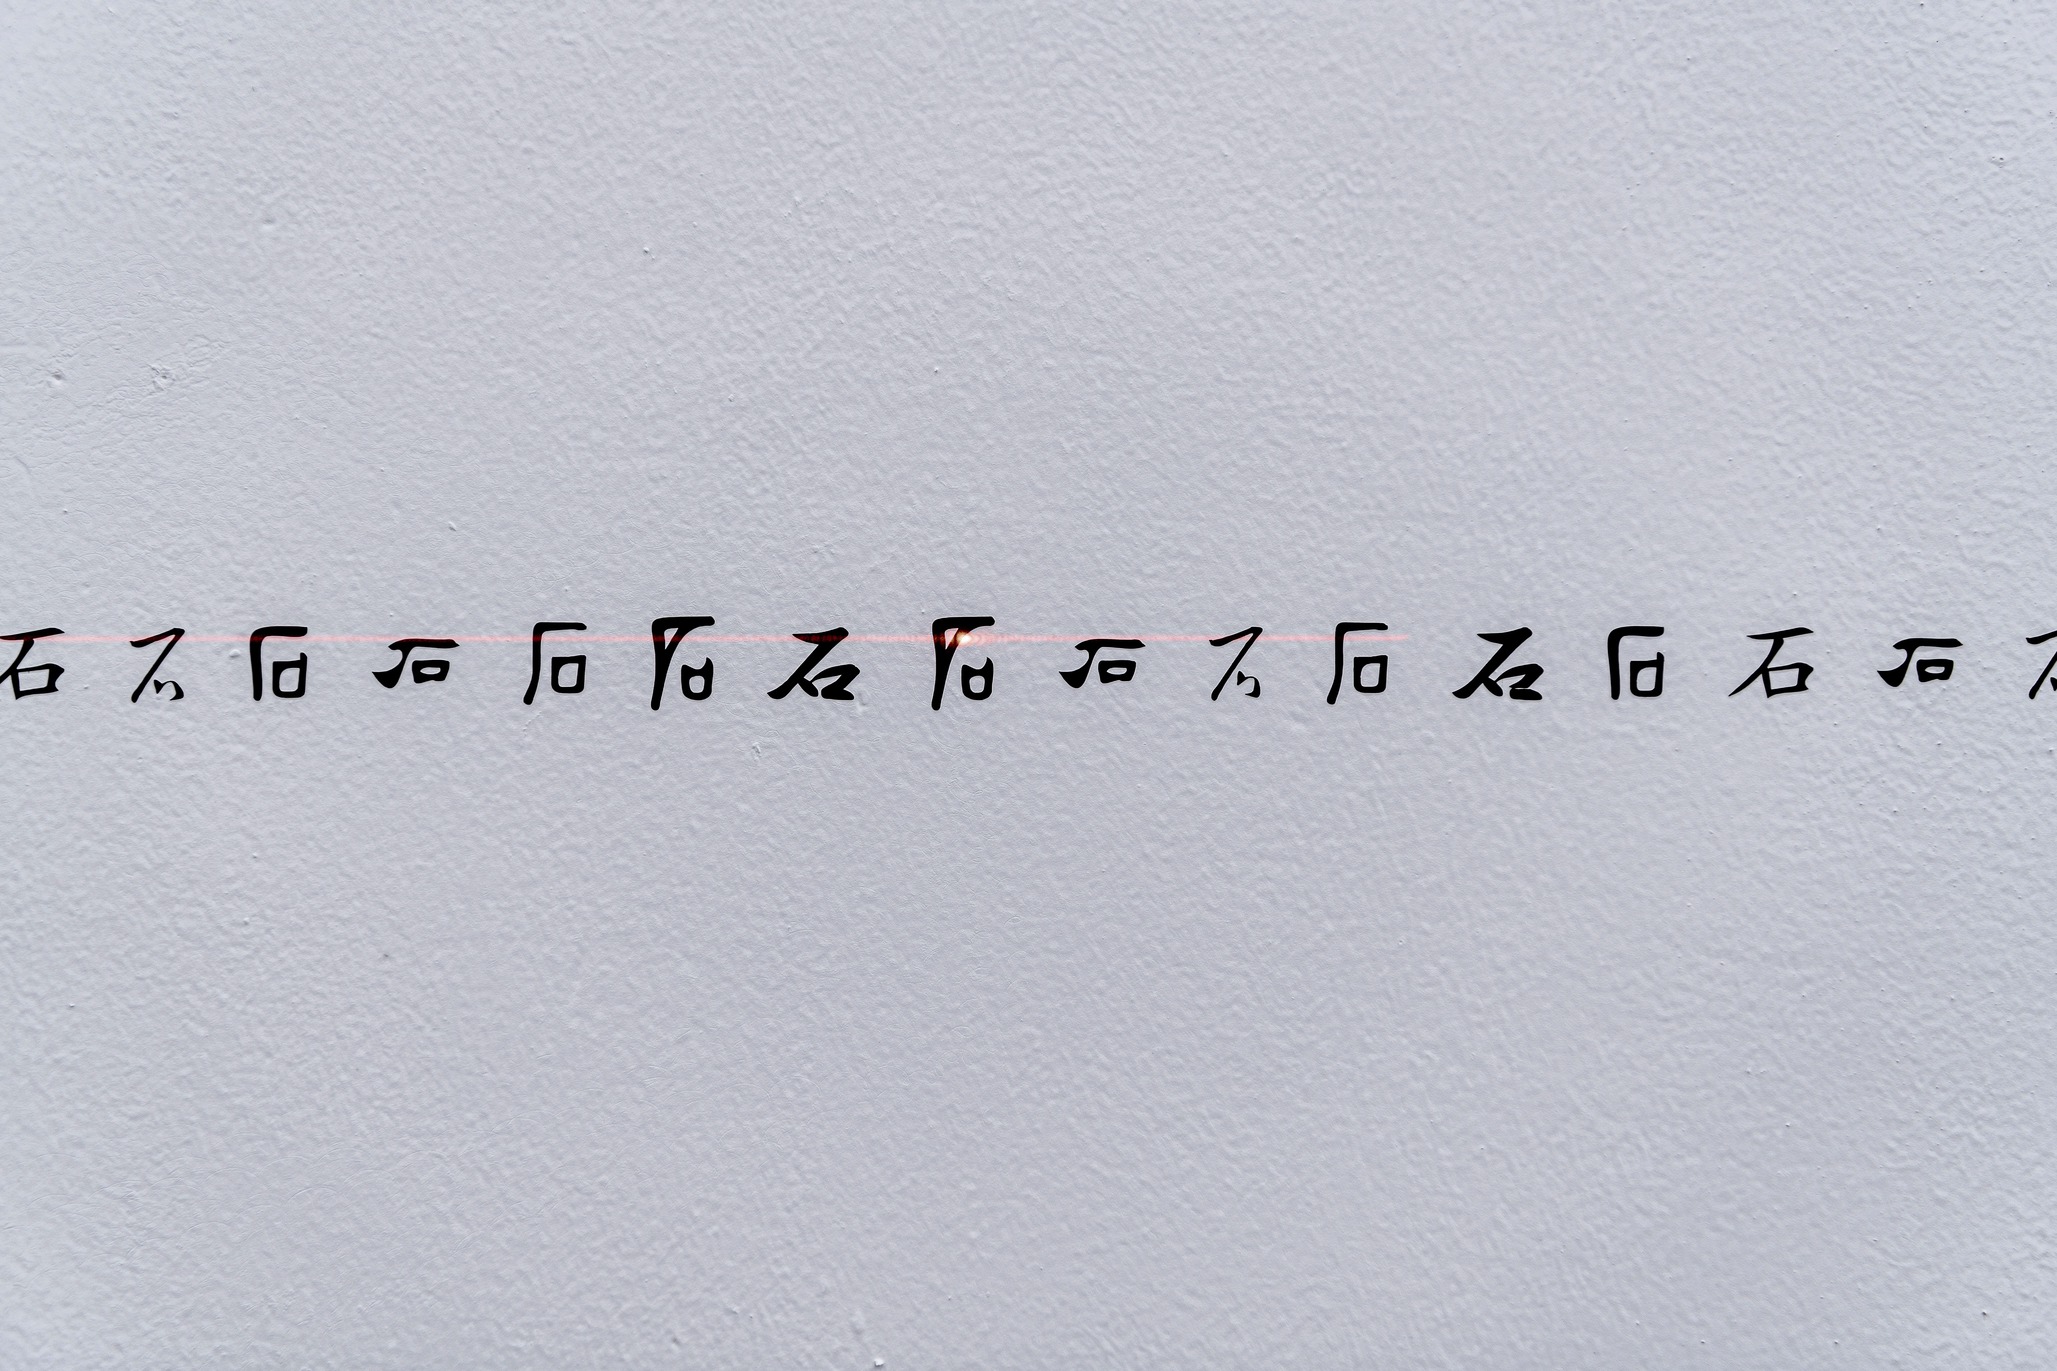 石石石石石石石石石石石石石石石